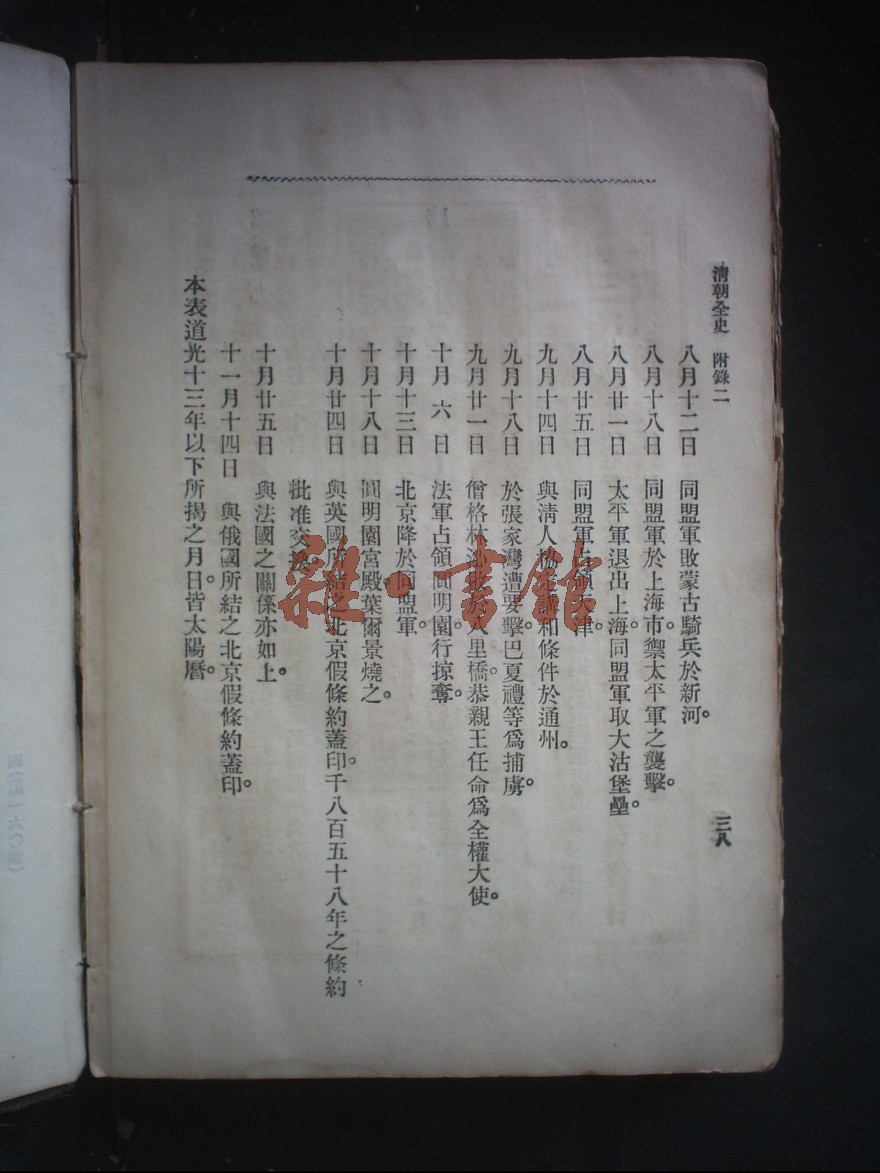 清朝全史 附錄二 三八
八月十二日 同盟軍敗蒙古騎兵於新河。
八月十八日 同盟軍於上海市禦太平軍之襲擊。
八月廿一日 太平軍退出上海。同盟軍取大沽堡壘。
八月廿五日 同盟軍占領天津。
九月十四日 與清人協定講和條件於通州。
九月十八日 於張家灣遭要擊。巴夏禮等爲捕虜。
九月廿一日 僧格林沁敗於八里橋。恭親王任命爲全權大使。
十月 六 日 法軍占領圓明園。行掠奪。
十月十三日 北京降於同盟軍。
十月十八日 圓明園宮殿。葉爾景燒之。
十月廿四日 與英國所結之北京假條約蓋印。千八百五十八年之條約
批准交換。
十月廿五日 與法國之關係亦如上。
十一月十四日 與俄國所結之北京假條約蓋印。
本表道光十三年以下所揭之月日。皆太陽曆。
雜·書館